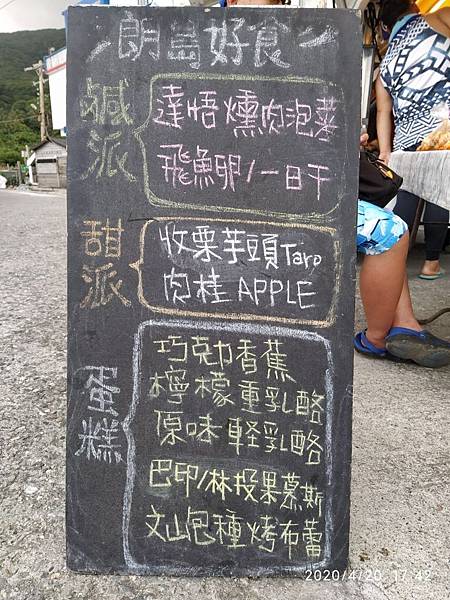 朗島好食
鹹派
達悟燻肉泡菜
飛魚卵/一日干
甜派
收栗芋頭Taro
肉桂APPLE
蛋糕
巧克力香蕉
檸檬重乳酪
原味輕乳酪
巴印/林投果慕斯
文山包種烤布蕾
2020/4/20 17:42